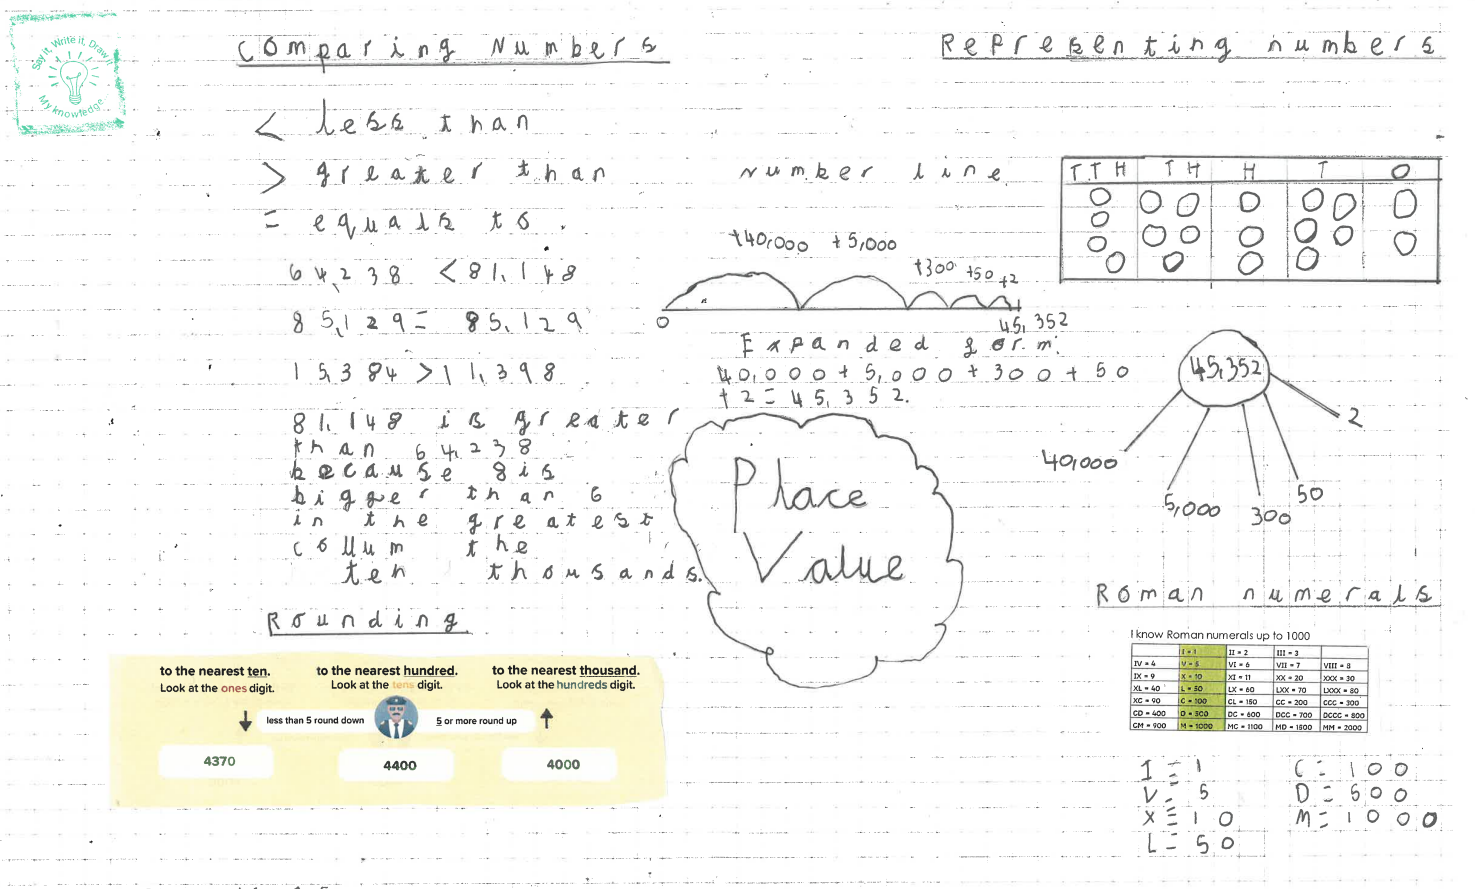 Say it, Write it, Draw it
My knowledge
Comparing Numbers
< less than
> greater than
= equals to.
64,238 < 81,148
85,129 = 85,129
15,384 > 11,398
81,148 is greater
than 64,238
because 8 is
bigger than 6
in the greatest
collum the
ten thousands.
Representing numbers
number line
+40,000 +5,000 +300 +50 +2
0 45,352
Expanded form.
40,000 + 5,000 + 300 + 50
+ 2 = 45,352.
T T H T H H T O
45,352
40,000 5,000 300 50 2
Place
Value
Rounding
to the nearest ten. to the nearest hundred. to the nearest thousand.
Look at the ones digit. Look at the tens digit. Look at the hundreds digit.
less than 5 round down 5 or more round up
4370 4400 4000
Roman numerals
I know Roman numerals up to 1000
I = 1 II = 2 III = 3
IV = 4 V = 5 VI = 6 VII = 7 VIII = 8
IX = 9 X = 10 XI = 11 XX = 20 XXX = 30
XL = 40 L = 50 LX = 60 LXX = 70 LXXX = 80
XC = 90 C = 100 CL = 150 CC = 200 CCC = 300
CD = 400 D = 500 DC = 600 DCC = 700 DCCC = 800
CM = 900 M = 1000 MC = 1100 MD = 1500 MM = 2000
I = 1 C = 100
V = 5 D = 500
X = 10 M = 1000
L = 50